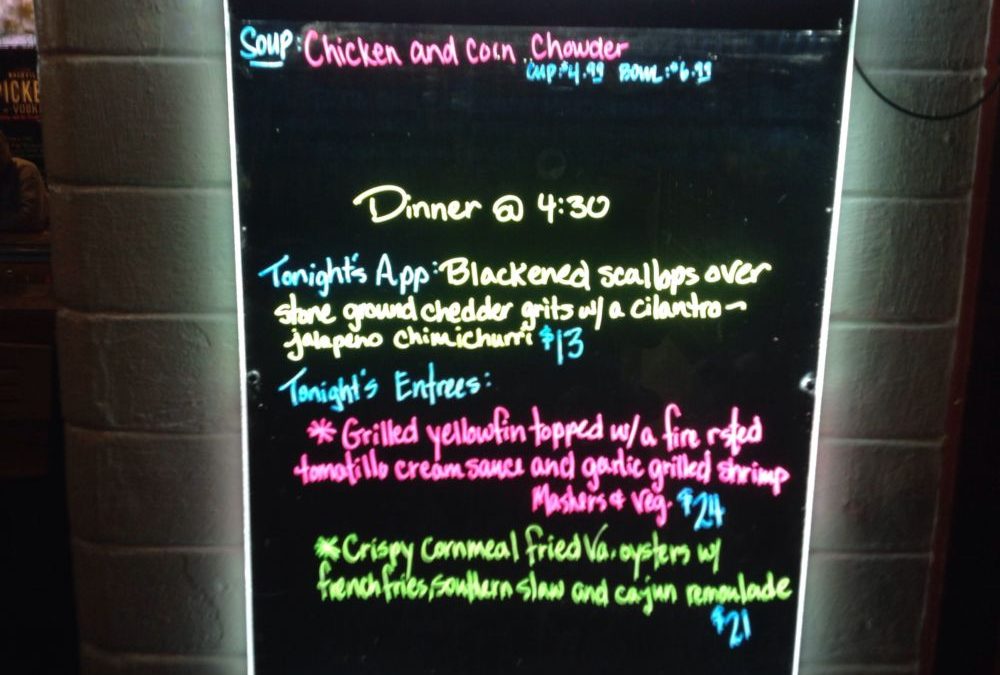 Soup: Chicken and Corn Chowder
Cup: $4.99 Bowl: $6.99
Dinner @ 4:30
Tonight's App: Blackened scallops over
stone ground chedder grits w/ a cilantro-
jalapeno chimichurri $13
Tonight's Entrees:
* Grilled yellowfin topped w/ a fire rsted
tomatillo cream sauce and garlic grilled shrimp
Mashers & Veg. $24
* Crispy Cornmeal fried Va. oysters w/
french fries, southern slaw and cajun remoulade
$21
PICKE
VODKA